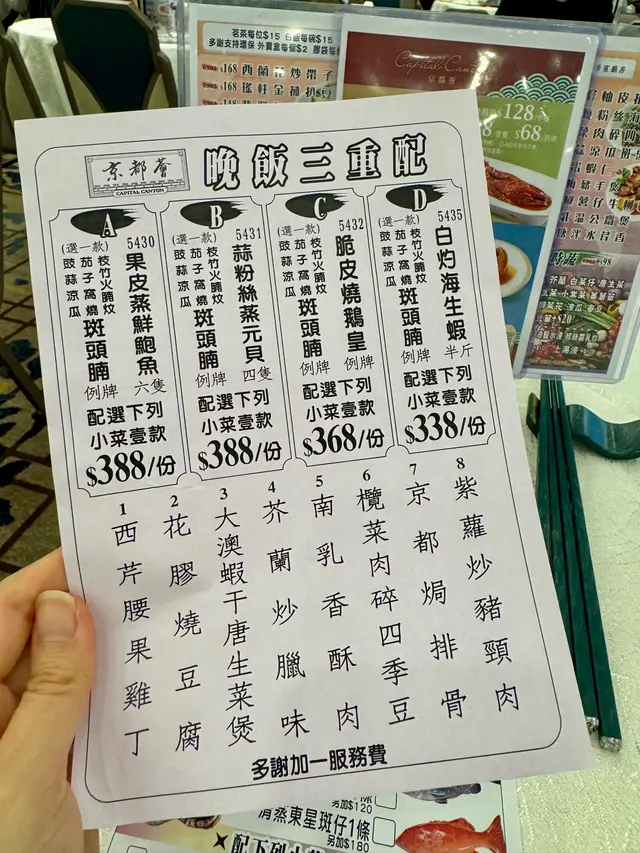 茗茶每位$15 白飯每碗$15
多謝支持環保 外賣盒每個$2 膠袋每
$168 西蘭花炒帶子
$168 瑤柱金菇扒豆
Capital Canton
京都薈
128
$68
京都薈
CAPITAL CANTON
晚飯三重配
A
5430
果皮蒸鮮鮑魚
六隻
(選一款)
枝竹火腩炆
茄子窩燒
豉蒜涼瓜
斑頭腩
例牌
配選下列
小菜壹款
$388/份
B
5431
蒜粉絲蒸元貝
四隻
(選一款)
枝竹火腩炆
茄子窩燒
豉蒜涼瓜
斑頭腩
例牌
配選下列
小菜壹款
$388/份
C
5432
脆皮燒鵝皇
例牌
(選一款)
枝竹火腩炆
茄子窩燒
豉蒜涼瓜
斑頭腩
例牌
配選下列
小菜壹款
$368/份
D
5435
白灼海生蝦
半斤
(選一款)
枝竹火腩炆
茄子窩燒
豉蒜涼瓜
斑頭腩
例牌
配選下列
小菜壹款
$338/份
1 西芹腰果雞丁
2 花膠燒豆腐
3 大澳蝦干唐生菜煲
4 芥蘭炒臘味
5 南乳香酥肉
6 欖菜肉碎四季豆
7 京都焗排骨
8 紫蘿炒豬頸肉
多謝加一服務費
另加$120
清蒸東星斑仔1條
另加$180